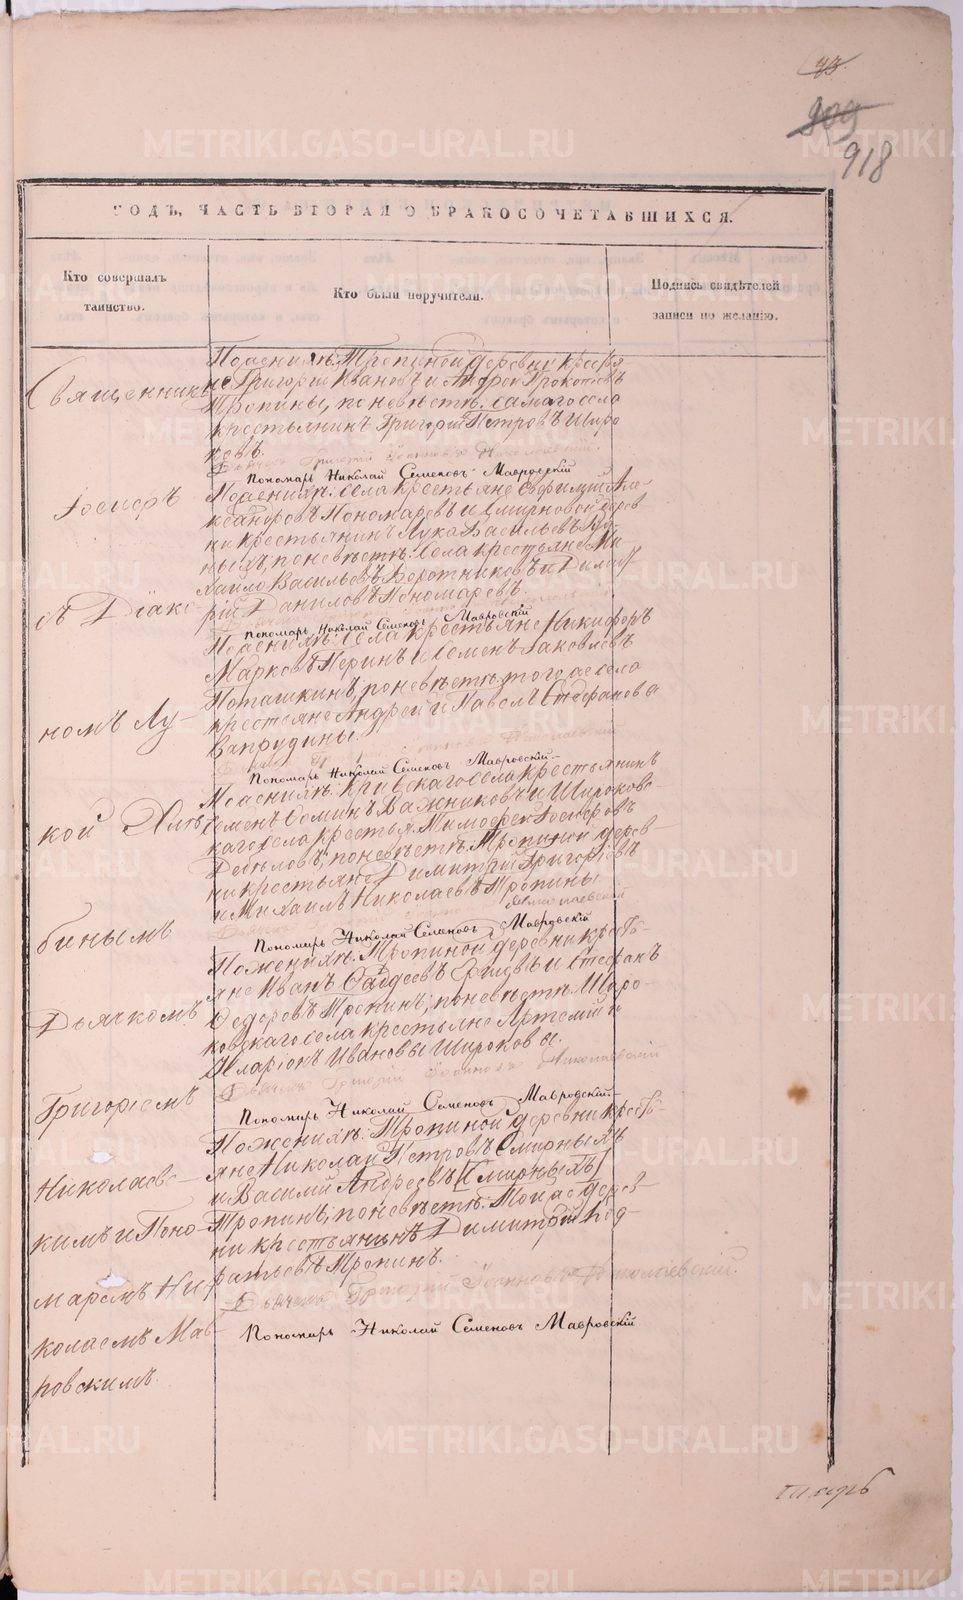 918
ГОДЪ, ЧАСТЬ ВТОРАЯ О БРАКОСОЧЕТАВШИХСЯ.
Кто совершалъ
таинство.
Кто были поручители.
Подпись свидѣтелей
записи по желанію.
Священникъ
Іосифъ
съ Діако-
номъ Лу-
кой Хлѣ-
бинымъ
Дьячкомъ
Григоріемъ
Николаевс-
кимъ и Поно-
маремъ Ни-
колаемъ Мав-
ровскимъ.
По женихѣ: Тропиной деревни крестья
не Григорій Ивановъ и Андрей Прокопьевъ
Тропины, по невѣстѣ: самаго села
крестьянинъ Григорій Петровъ Широ
ковъ.
Дьячекъ Григорій Іоанновъ Николаевскій.
Пономарь Николай Семеновъ Мавровскій
По женихѣ: села крестьяне Евфимій Але-
ксандровъ Пономаревъ и Смирновой дерев-
ни крестьянинъ Лука Васильевъ
ныхъ, по невѣстѣ: села крестьяне Ми-
хайло Васильевъ Воротниковъ и Димит
рій Даниловъ Пономаревъ.
Пономарь Николай Семеновъ Мавровскій
По женихѣ: села крестьяне Никифоръ
Марковъ Перинъ и Семенъ Іаковлевъ
Поташкинъ, по невѣстѣ: того же села
крестьяне Андрей и Павелъ Стефановы
Запрудины.
Пономарь Николай Семеновъ Мавровскій
По женихѣ: Кривскаго села крестьянинъ
Семенъ Фоминъ Важниковъ и Широковс-
каго села крестья. Тимофей Іосифовъ
Дебеловъ; по невѣстѣ: Тропиной дерев-
ни крестьяне Димитрій Григорьевъ
и Михаилъ Николаевъ Тропины
Пономарь Николай Семеновъ Мавровскій
По женихѣ: Тропиной деревни кресть-
яне Иванъ Фаддеевъ и Стефанъ
Федоровъ Тропинъ; по невѣстѣ: Широ-
ковскаго села крестьяне Артемій и
Иларіонъ Ивановы Широковы.
Дьячекъ Григорій Іоанновъ Николаевскій
Пономарь Николай Семеновъ Мавровскій
По женихѣ: Тропиной деревни кресть-
яне Николай Петровъ Смирныхъ
и Василій Андреевъ [Смирныхъ]
Тропинъ, по невѣстѣ: Той же дерев-
ни крестьянинъ Димитрій Код-
ратьевъ Тропинъ.
Дьячекъ Григорій Іоанновъ Николаевскій.
Пономарь Николай Семеновъ Мавровскій